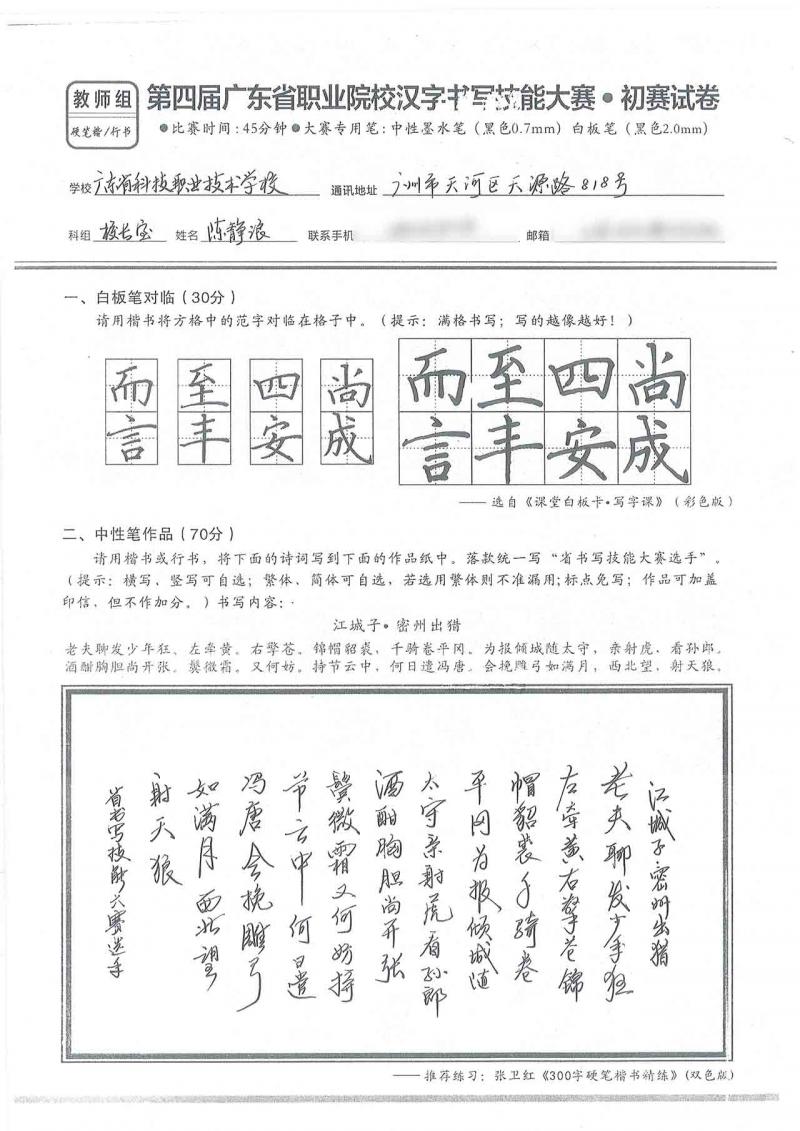 教师组
硬笔楷/行书
第四届广东省职业院校汉字书写技能大赛•初赛试卷
●比赛时间:45分钟●大赛专用笔:中性墨水笔(黑色0.7mm)白板笔(黑色2.0mm)
学校 广东省科技职业技术学校 通讯地址 广州市天河区天源路818号
科组 校长室 姓名 陈静浪 联系手机 邮箱
一、白板笔对临(30分)
请用楷书将方格中的范字对临在格子中。(提示:满格书写;写的越像越好!)
而 至 四 尚 而 至 四 尚
言 丰 安 成 言 丰 安 成
——选自《课堂白板卡•写字课》(彩色版)
二、中性笔作品(70分)
请用楷书或行书,将下面的诗词写到下面的作品纸中。落款统一写“省书写技能大赛选手”。
(提示:横写、竖写可自选;繁体、简体可自选,若选用繁体则不准漏用;标点免写;作品可加盖
印信,但不作加分。)书写内容:
江城子•密州出猎
老夫聊发少年狂、左牵黄。右擎苍。锦帽貂裘,千骑卷平冈。为报倾城随太守,亲射虎,看孙郎。
酒酣胸胆尚开张。鬓微霜。又何妨。持节云中,何日遣冯唐。会挽雕弓如满月,西北望,射天狼。
江城子密州出猎
老夫聊发少年狂
左牵黄右擎苍锦
帽貂裘千骑卷
平冈为报倾城随
太守亲射虎看孙郎
酒酣胸胆尚开张
鬓微霜又何妨持
节云中何日遣
冯唐会挽雕弓
如满月西北望
射天狼
省书写技能大赛选手
——推荐练习:张卫红《300字硬笔楷书精练》(双色版)